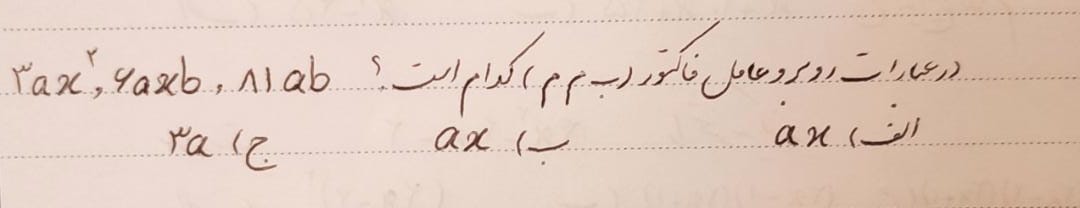 در عبارات روبرو عامل فاکتور (ب م م) کدام است؟ ۳ax²، ۶axb، ۸۱ab
الف) ax ب) ax ج) ۳a